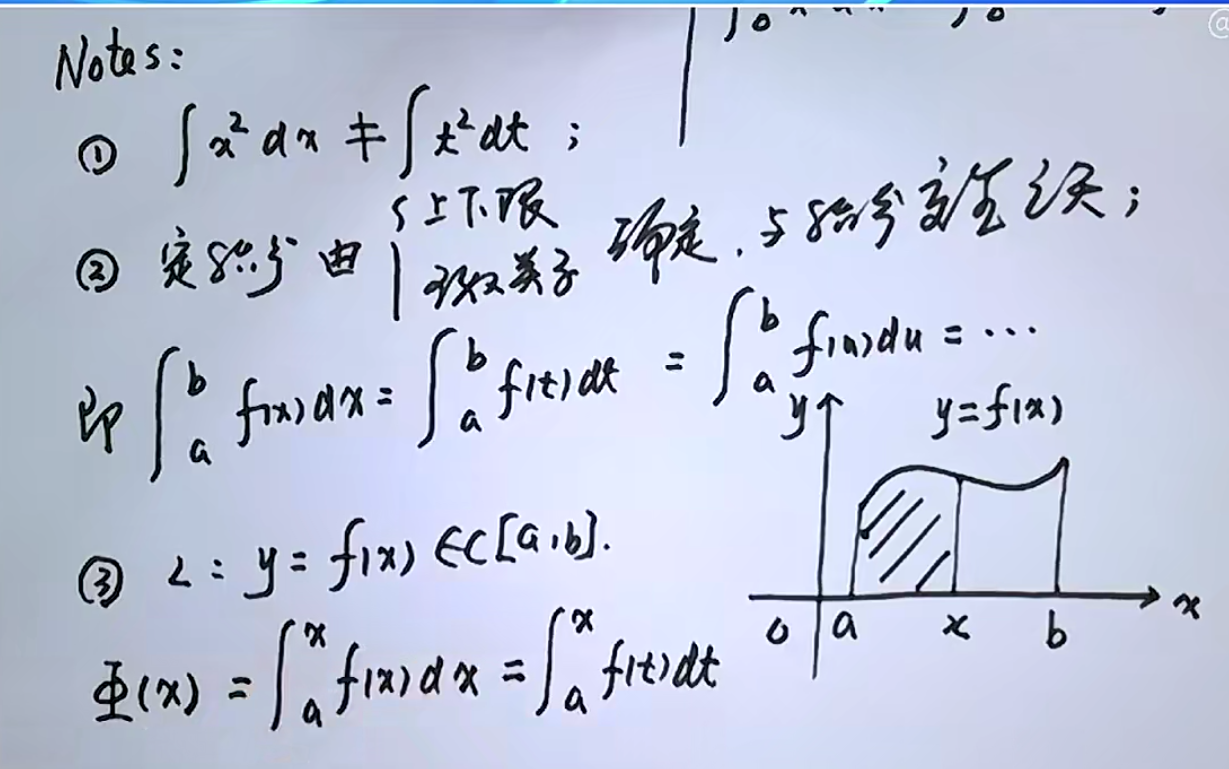 Notes:
① ∫x²dx ≠ ∫t²dt ;
② 定积分由 { 上下限 函数关系 确定, 与积分变量无关;
即 ∫_a^b f(x)dx = ∫_a^b f(t)dt = ∫_a^b f(u)du = ···
③ L: y = f(x) ∈ C[a,b].
Φ(x) = ∫_a^x f(x)dx = ∫_a^x f(t)dt
y
y=f(x)
0 a x b x